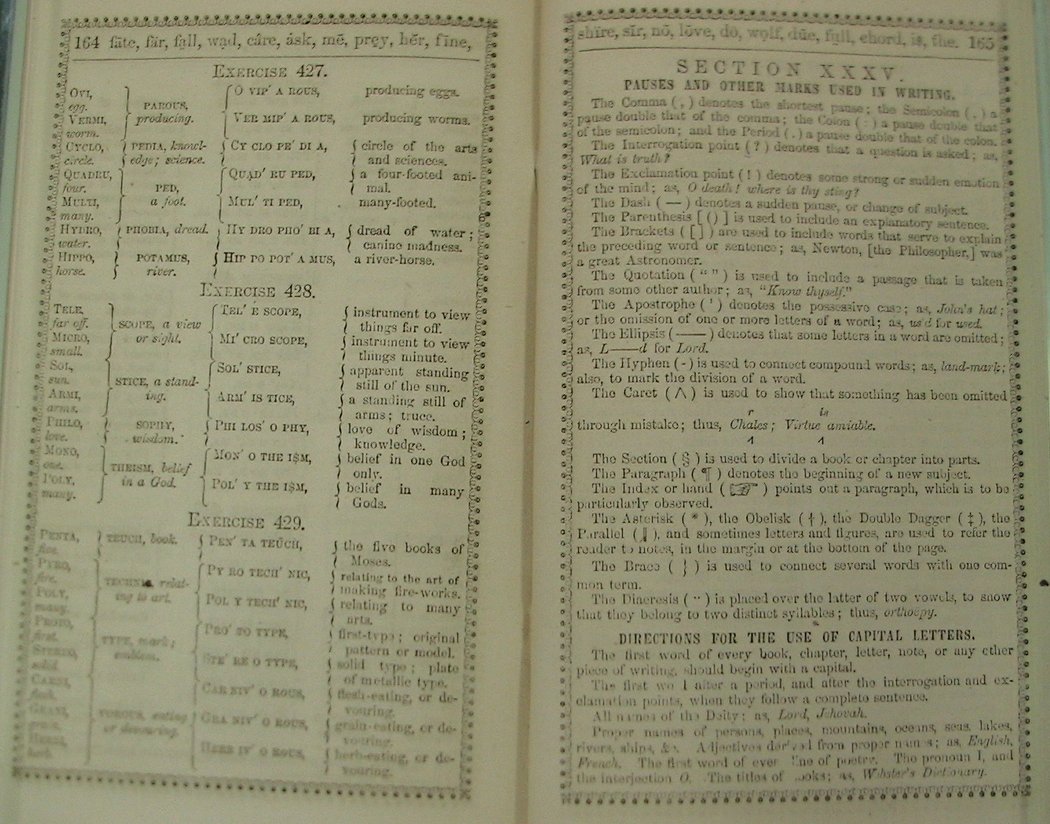 164 fāte, fär, fạll, wạd, câre, ȧsk, mē, prẹy, hẽr, fīne,
EXERCISE 427.
OVI, egg. } PAROUS, producing. { O VIP' A ROUS, producing eggs.
VERMI, worm. { VER MIP' A ROUS, producing worms.
CYCLO, circle. } PEDIA, knowledge; science. { CY CLO PE' DI A, { circle of the arts
and sciences.
QUADRU, four. } PED, a foot. { QUAD' RU PED, { a four-footed ani-
mal.
MULTI, many. { MUL' TI PED, many-footed.
HYDRO, water. } PHOBIA, dread. { HY DRO PHO' BI A, { dread of water;
canine madness.
HIPPO, horse. } POTAMUS, river. { HIP PO POT' A MUS, a river-horse.
EXERCISE 428.
TELE, far off. } SCOPE, a view or sight. { TEL' E SCOPE, { instrument to view
things far off.
MICRO, small. { MI' CRO SCOPE, { instrument to view
things minute.
SOL, sun. } STICE, a standing. { SOL' STICE, { apparent standing
still of the sun.
ARMI, arms. { ARM' IS TICE, { a standing still of
arms; truce.
PHILO, love. } SOPHY, wisdom. { PHI LOS' O PHY, { love of wisdom;
knowledge.
MONO, one. } THEISM, belief in a God. { MON' O THE ISM, { belief in one God
only.
POLY, many. { POL' Y THE ISM, { belief in many
Gods.
EXERCISE 429.
PENTA, five. } TEUCH, book. { PEN' TA TEŪCH, { the five books of
Moses.
PYRO, fire. } TECHNIC, relating to art. { PY RO TECH' NIC, { relating to the art of
making fire-works.
POLY, many. { POL Y TECH' NIC, { relating to many
arts.
PROTO, first. } TYPE, mark; emblem. { PRO' TO TYPE, { first-type; original
pattern or model.
STEREO, solid. { STE' RE O TYPE, { solid type; plate
of metallic type.
CARNI, flesh. } VOROUS, eating or devouring. { CAR NIV' O ROUS, { flesh-eating, or de-
vouring.
GRANI, grain. { GRA NIV' O ROUS, { grain-eating, or de-
vouring.
HERBI, herb. { HERB IV' O ROUS, { herb-eating, or de-
vouring.
shīre, sïr, nō, lòve, dọ, wọlf, dūe, fụll, chord, is, the. 165
SECTION XXXV.
PAUSES AND OTHER MARKS USED IN WRITING.
The Comma ( , ) denotes the shortest pause; the Semicolon ( ; ) a
pause double that of the comma; the Colon ( : ) a pause double that
of the semicolon; and the Period ( . ) a pause double that of the colon.
The Interrogation point ( ? ) denotes that a question is asked; as,
What is truth?
The Exclamation point ( ! ) denotes some strong or sudden emotion
of the mind; as, O death! where is thy sting?
The Dash ( — ) denotes a sudden pause, or change of subject.
The Parenthesis [ ( ) ] is used to include an explanatory sentence.
The Brackets ( [ ] ) are used to include words that serve to explain
the preceding word or sentence; as, Newton, [the Philosopher,] was
a great Astronomer.
The Quotation ( “ ” ) is used to include a passage that is taken
from some other author; as, “Know thyself.”
The Apostrophe ( ' ) denotes the possessive case; as, John's hat;
or the omission of one or more letters of a word; as, us'd for used.
The Ellipsis ( —— ) denotes that some letters in a word are omitted;
as, L——d for Lord.
The Hyphen ( - ) is used to connect compound words; as, land-mark;
also, to mark the division of a word.
The Caret ( ∧ ) is used to show that something has been omitted
r is
through mistake; thus, Chales; Virtue amiable.
∧ ∧
The Section ( § ) is used to divide a book or chapter into parts.
The Paragraph ( ¶ ) denotes the beginning of a new subject.
The Index or hand ( ☞ ) points out a paragraph, which is to be
particularly observed.
The Asterisk ( * ), the Obelisk ( † ), the Double Dagger ( ‡ ), the
Parallel ( ‖ ), and sometimes letters and figures, are used to refer the
reader to notes, in the margin or at the bottom of the page.
The Brace ( } ) is used to connect several words with one com-
mon term.
The Diaeresis ( ¨ ) is placed over the latter of two vowels, to show
that they belong to two distinct syllables; thus, orthoëpy.
DIRECTIONS FOR THE USE OF CAPITAL LETTERS.
The first word of every book, chapter, letter, note, or any other
piece of writing, should begin with a capital.
The first word after a period, and after the interrogation and ex-
clamation points, when they follow a complete sentence.
All names of the Deity; as, Lord, Jehovah.
Proper names of persons, places, mountains, oceans, seas, lakes,
rivers, ships, &c. Adjectives derived from proper names; as, English,
French. The first word of every line of poetry. The pronoun I, and
the interjection O. The titles of books; as, Webster's Dictionary.